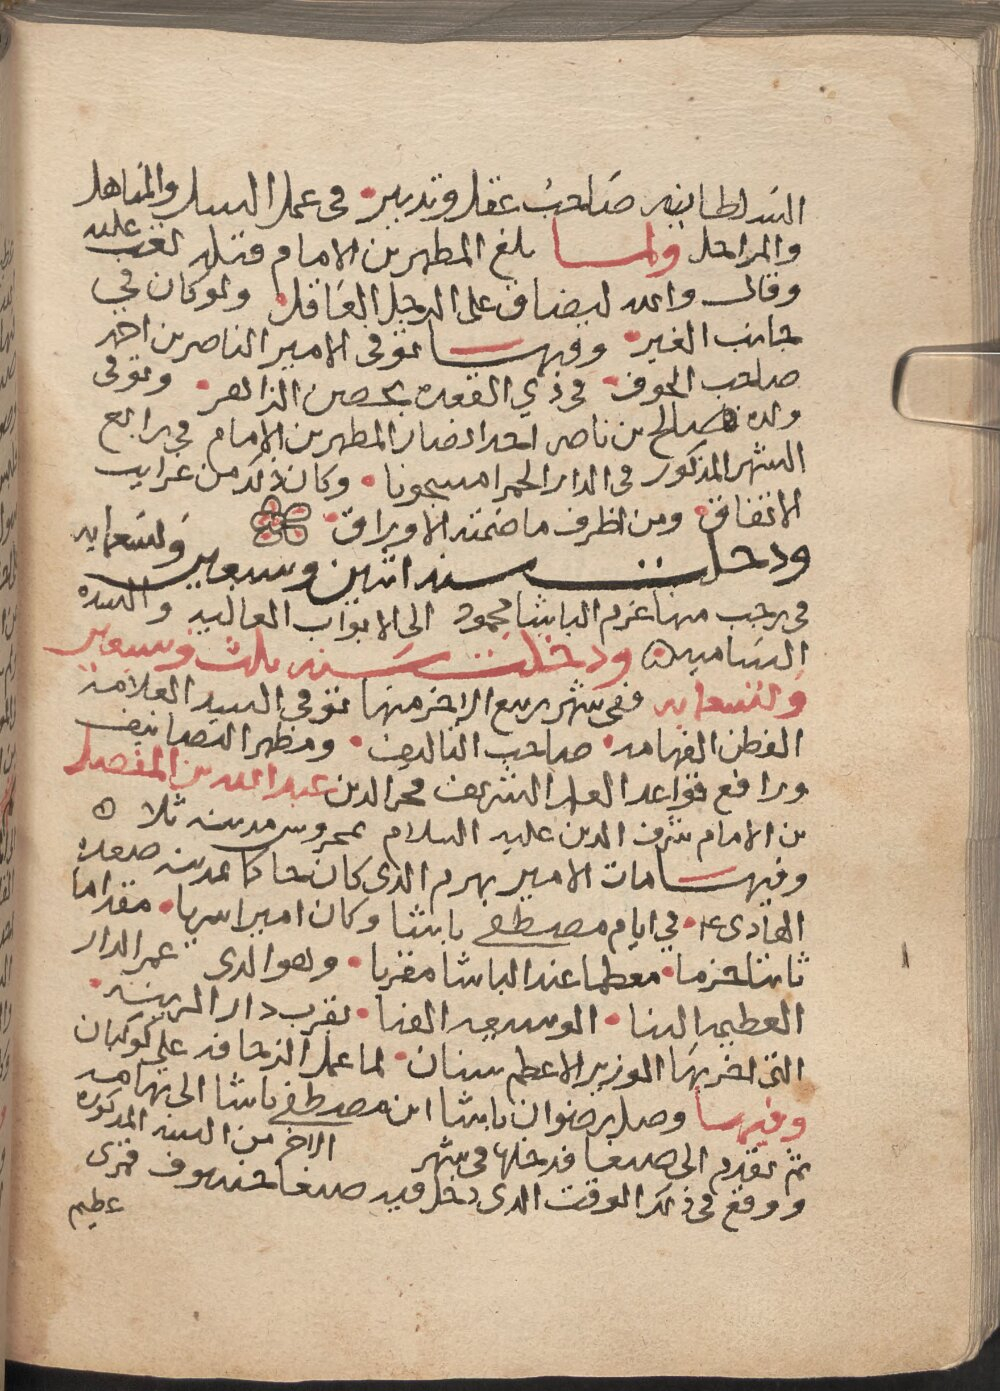 السلطانيه صاحب عقل وتدبير • في عمل السبل والمناهل
والمراحل ولما بلغ المطهر بن الامام قتله لغب عليه
وقال والله ليضاق على الرجل العاقل • ولو كان في
جانب الغير • وفيها توفي الامير الناصر بن احمد
صاحب الجوف • في ذي القعده بحصن الزاهر • وتوفي
ولده صالح بن ناصر احد انصار المطهر بن الامام في رابع
الشهر المذكور في الدار الحمرا مسجونا • وكان ذلك من غرايب
الاتفاق • ومن اظرف ما ضمنته الاوراق •
ودخلت سنه اثنين وسبعين وتسعمايه
في رجب منها عزم الباشا محمود الى الابواب العاليه والسده
الساميه ودخلت سنه ثلث وسبعين
وتسعمايه ففي شهر ربيع الاخر منها توفي السيد العلامه
الفطن الفهامه • صاحب التاليف • ومظهر التصانيف
ورافع قواعد العلم الشريف فخر الدين عبد الله بن
بن الامام شرف الدين عليه السلام بمحروس مدينه ثلا
وفيها مات الامير بهرم الذي كان حاكما بمدينه صعده
الهادي ع م • في ايام مصطفى باشا وكان اميرا سريا • مقداما
ثابتا حزما • معظما عند الباشا مقربا • وهو الذي عمر الدار
العظيمه البنا • الوسيعه الفنا • بقرب دار الزينه •
التي اخربها الوزير الاعظم سنان • لما عمل الزحافه على كوكبان
وفيها وصل رضوان باشا ابن مصطفى باشا الى تهامه
ثم تقدم الى صنعا فدخلها في شهر الاخر من السنه المذكوره
ووقع في ذلك الوقت الذي دخل فيه صنعا خسوف قمري
عظيم